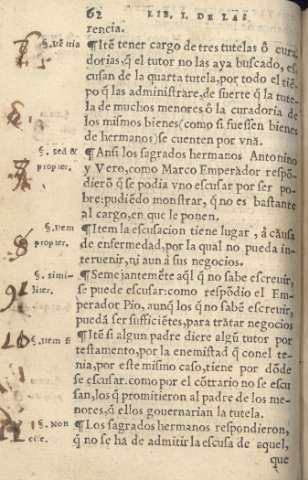 62 LIB. I. DE LAS
rencia.
§. itē tria ¶Itē tener cargo de tres tutelas ô cura
dorias, q̃ el tutor no las aya buscado, es
cusan de la quarta tutela, por todo el tiē
po q̃ las administrare, de suerte q̃ la tute
la de muchos menores ô la curadoria de
los mismos bienes (como si fuessen bienes
de hermanos) se cuenten por vnâ.
§. sed & ¶Ansi los sagrados hermanos Antonino
propter. y Vero, como Marco Emperador respō
dierō q̃ se podia vno escusar por ser po
bre: pudiēdo monstrar, q̃ no es bastante
al cargo, en que le ponen.
§. item ¶Item la escusacion tiene lugar, â câusa
propter. de enfermedad, por la qual no pueda in
teruenir, ni aun â sus negocios.
§. simi- ¶Semejantemēte aq̃l q̃ no sabe escreuir,
liter. se puede escusar: como respōdio el Em
perador Pio. aunq̃ los q̃ no sabē escreuir,
pueda ser sufficiētes, para trâtar negocios
§. item si ¶Itē si algun padre diere algū tutor por
testamento, por la enemistad q̃ conel te
nia, por este mismo caso, tiene por dōde
se escusar. como por el cōtrario no se escu
san, los q̃ promitieron al padre de los me
nores, q̃ ellos gouernarian la tutela.
§. non ¶Los sagrados hermanos respondieron,
esse. q̃ no se hà de admitir la escusa de aquel,
que